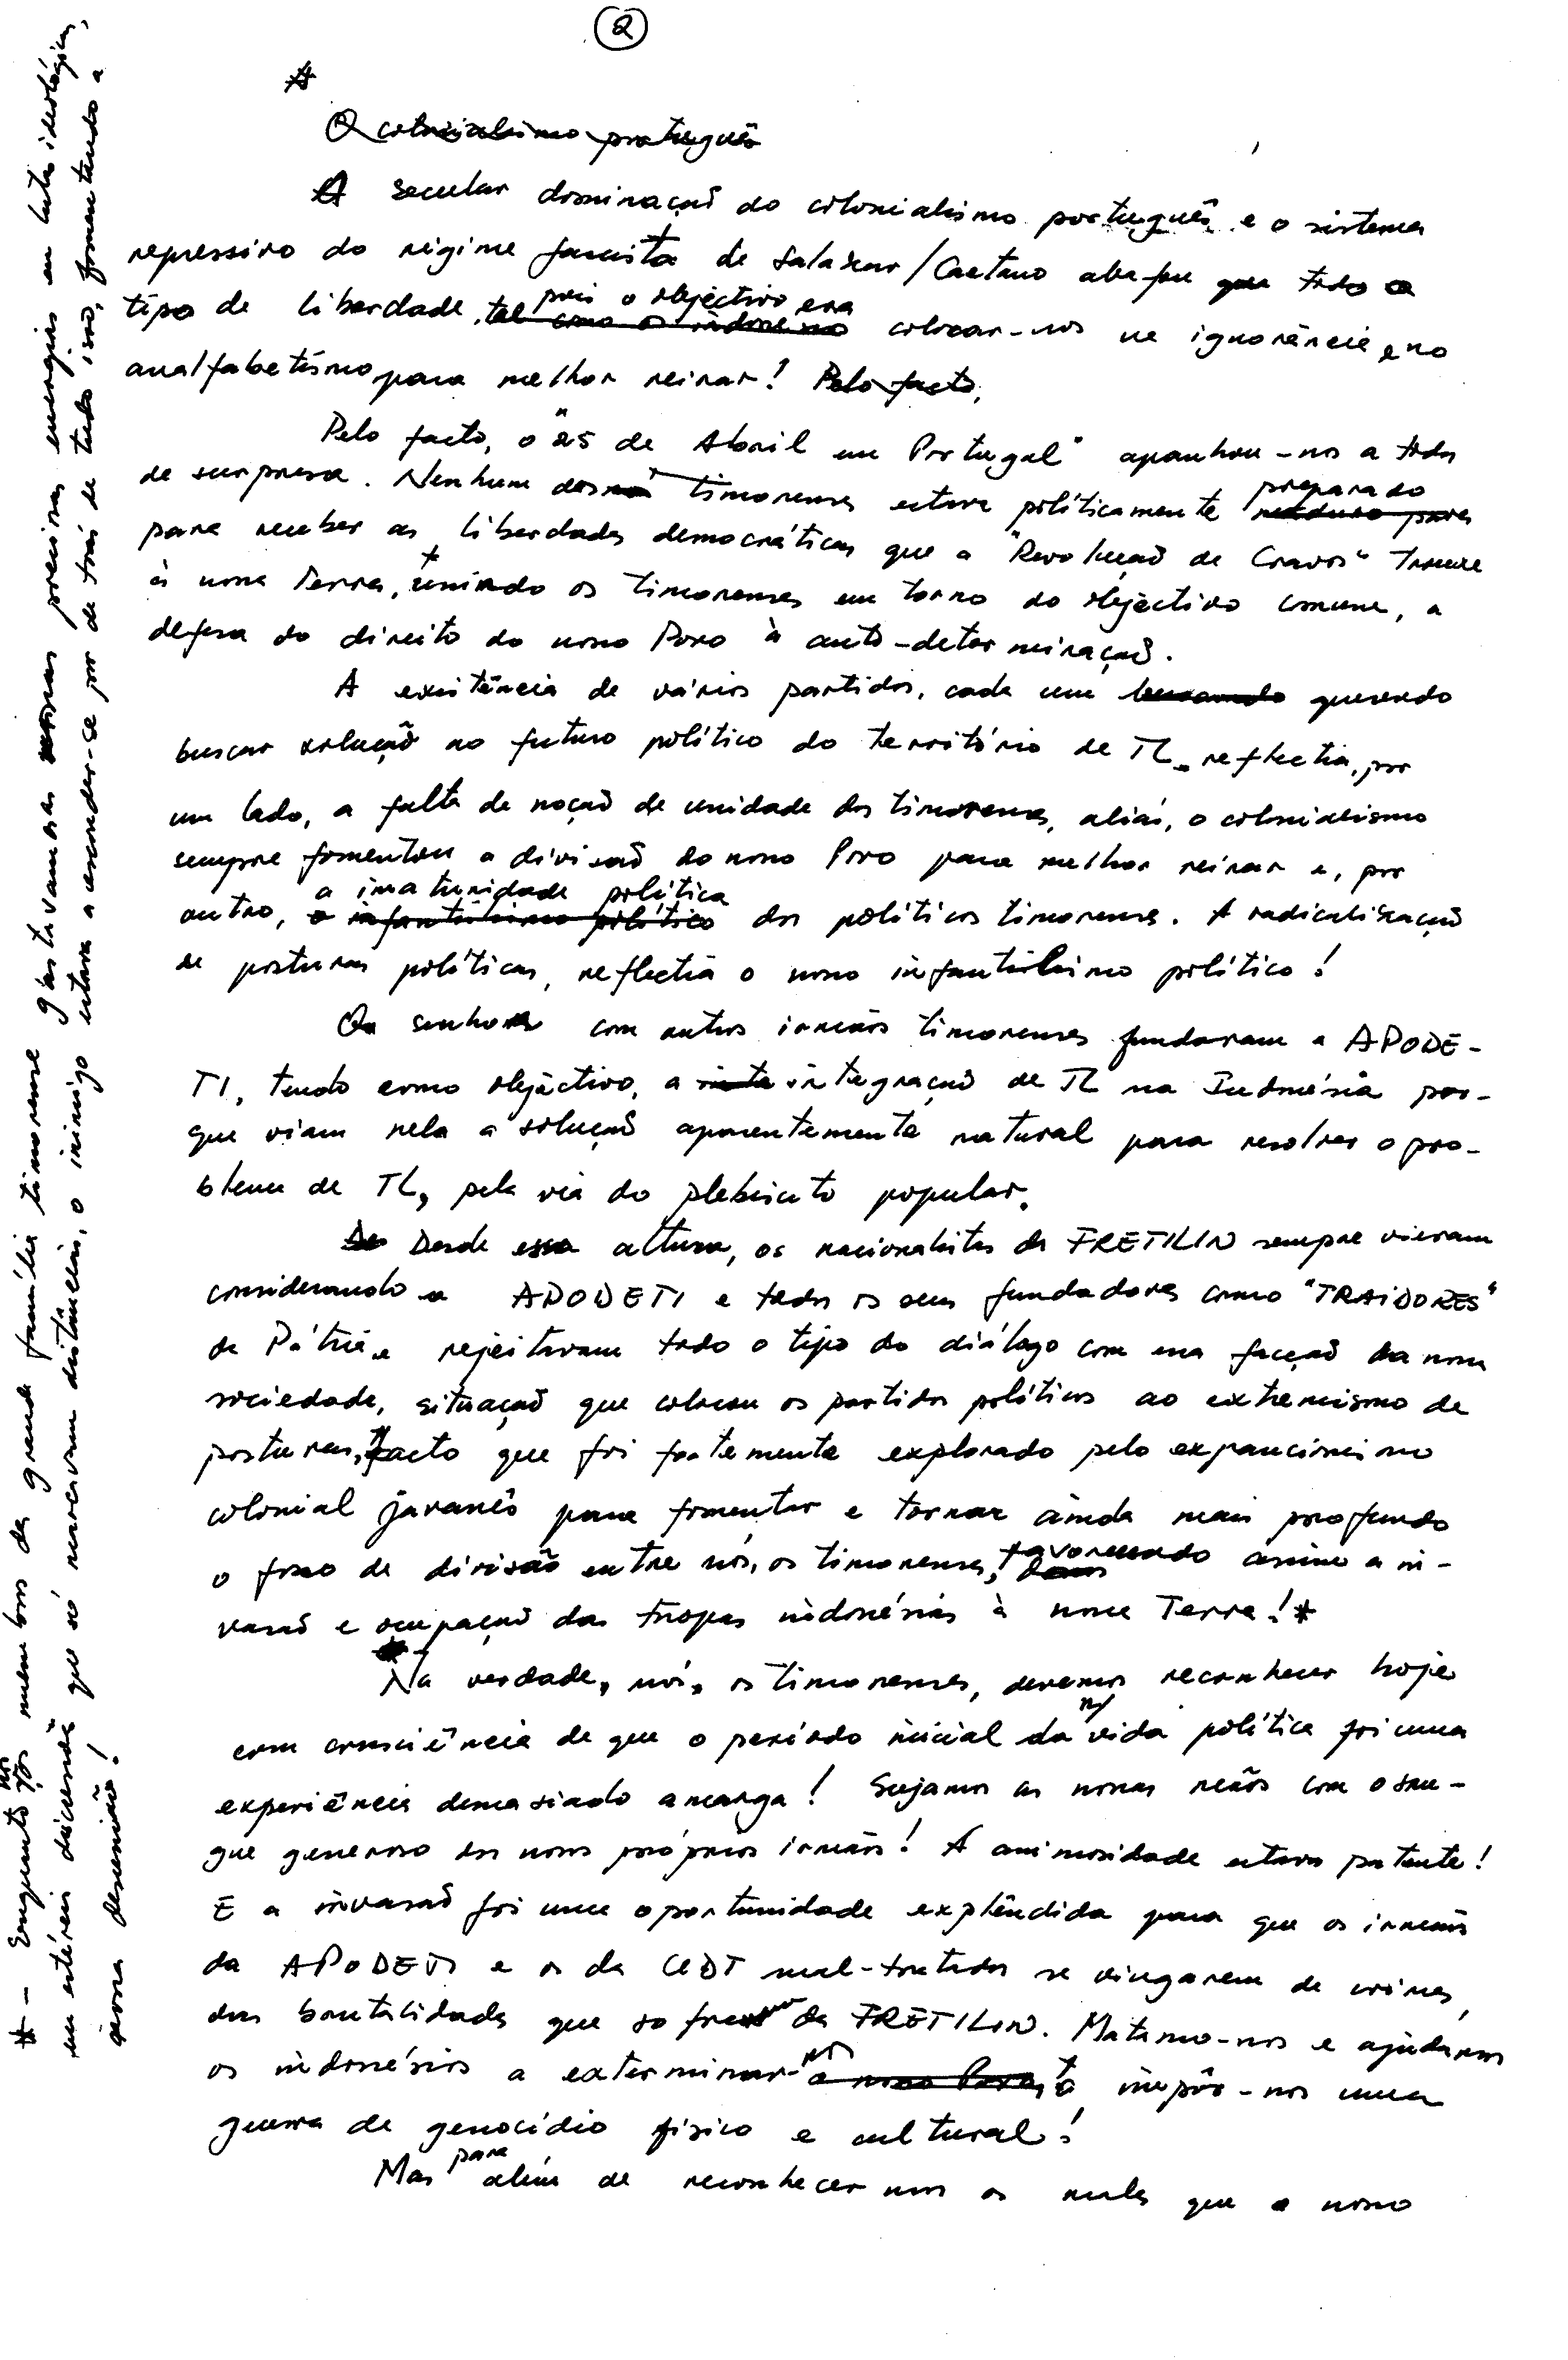 2
A
O colonialismo português
A secular dominação do colonialismo português e o sistema
repressivo do regime fascista de Salazar/Caetano abafou que todo o
tipo de liberdade, pois o objectivo era colocar-nos na ignorância e no
analfabetismo para melhor reinar! Pelo facto,
Pelo facto, o "25 de Abril em Portugal" apanhou-nos a todos
de surpresa. Nenhum dos timorenses estava políticamente preparado
para receber as liberdades democráticas que a "Revolução de Cravos" trouxe
à nossa Terra, unindo os timorenses em torno do objectivo comum, a
defesa do direito do nosso Povo à auto-determinação.
A existência de vários partidos, cada um buscando querendo
buscar solução ao futuro político do território de TL reflectia, por
um lado, a falta de noção de unidade dos timorenses, aliás, o colonialismo
sempre fomentou a divisão do nosso Povo para melhor reinar e, por
outro, a imaturidade política o infantilismo político dos políticos timorenses. A radicalização
de posturas políticas, reflectia o nosso infantilismo político!
Os senhores com outros irmãos timorenses fundaram a APODE-
TI, tendo como objectivo, a integração de TL na Indonésia por-
que viam nela a solução aparentemente natural para resolver o pro-
blema de TL, pela via do plebiscito popular.
De Desde essa altura, os nacionalistas da FRETILIN sempre vieram
considerando a APODETI e todos os seus fundadores como "TRAIDORES"
da Pátria e rejeitavam todo o tipo do diálogo com essa facção da nossa
sociedade, situação que colocou os partidos políticos ao extremismo de
posturas, facto que foi fortemente explorado pelo expancionismo
colonial javanês para fomentar e tornar ainda mais profundo
o fosso de divisão entre nós, os timorenses, favorecendo assim a in-
vasão e ocupação das tropas indonésias à nossa Terra! *
Na verdade, nós, os timorenses, devemos reconhecer hoje
com consciência de que o período inicial da n/ vida política foi uma
experiência demasiado amarga! Sujamos as nossas mãos com o san-
gue generoso dos nossos próprios irmãos! A animosidade estava patente!
E a invasão foi uma oportunidade explêndida para que os irmãos
da APODETI e os da UDT mal-tratados se vingarem de crimes,
das brutalidades que sofreram da FRETILIN. Matamo-nos e ajudamos
os indonésios a exterminar-nos o nosso Povo, impôr-nos uma
guerra de genocídio físico e cultural!
Mas para além de reconhecermos os males que o nosso
* - Enquanto nós os membros da grande família timorense gastavamos as nossas preciosas energias em lutas ideológicas,
em estéreis discussões que só marcavam distâncias, o inimigo estava a esconder-se por de trás de tudo isso, fomentando a
nossa desunião!